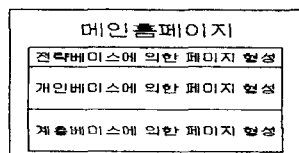 메인홈페이지
전략베이스에 의한 페이지 형성
개인베이스에 의한 페이지 형성
계층베이스에 의한 페이지 형성